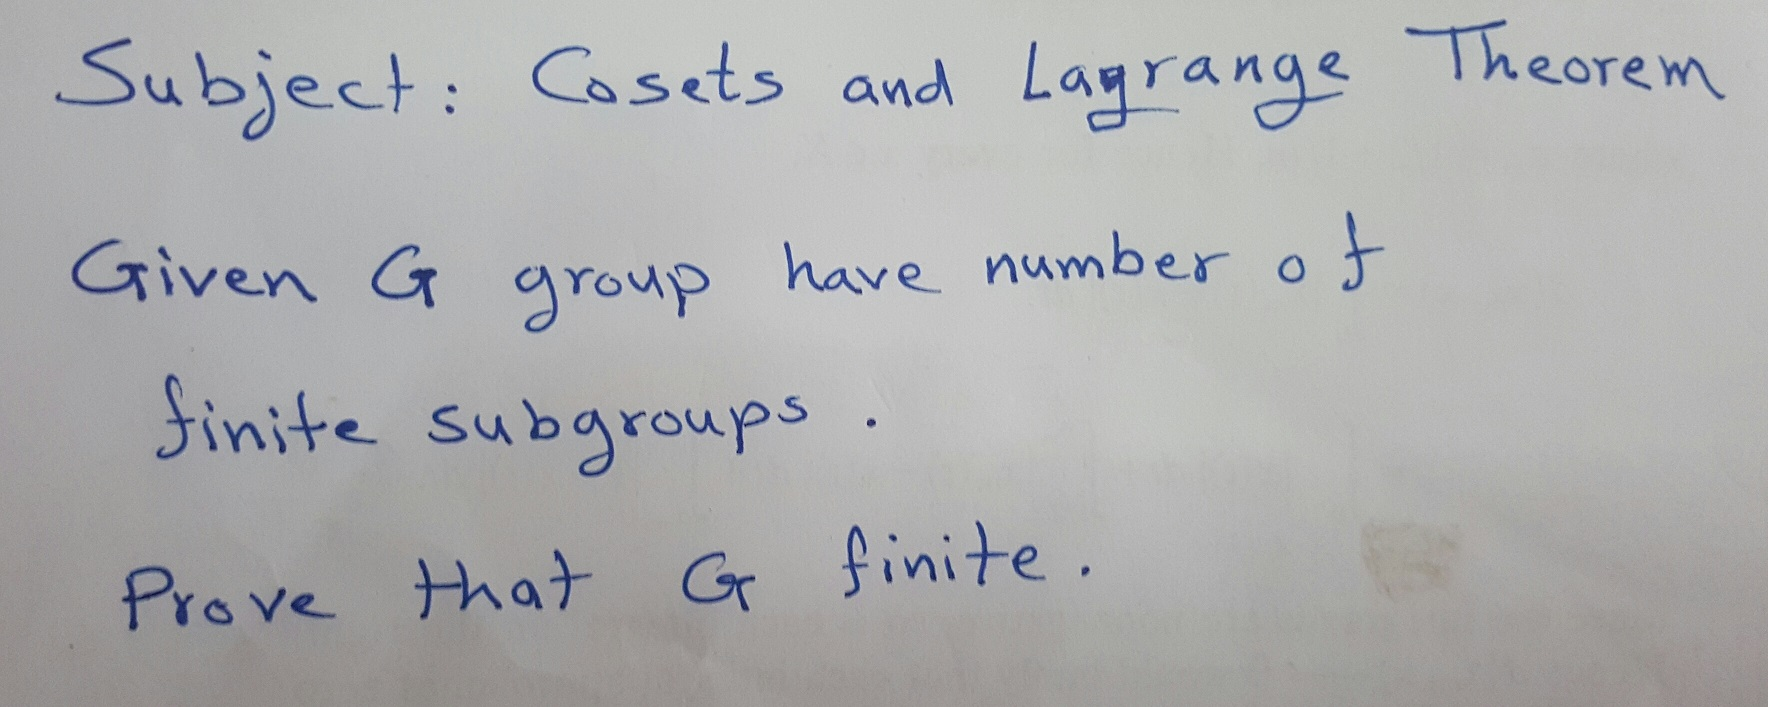 Subject: Cosets and Lagrange Theorem
Given G group have number of
finite subgroups.
Prove that G finite.